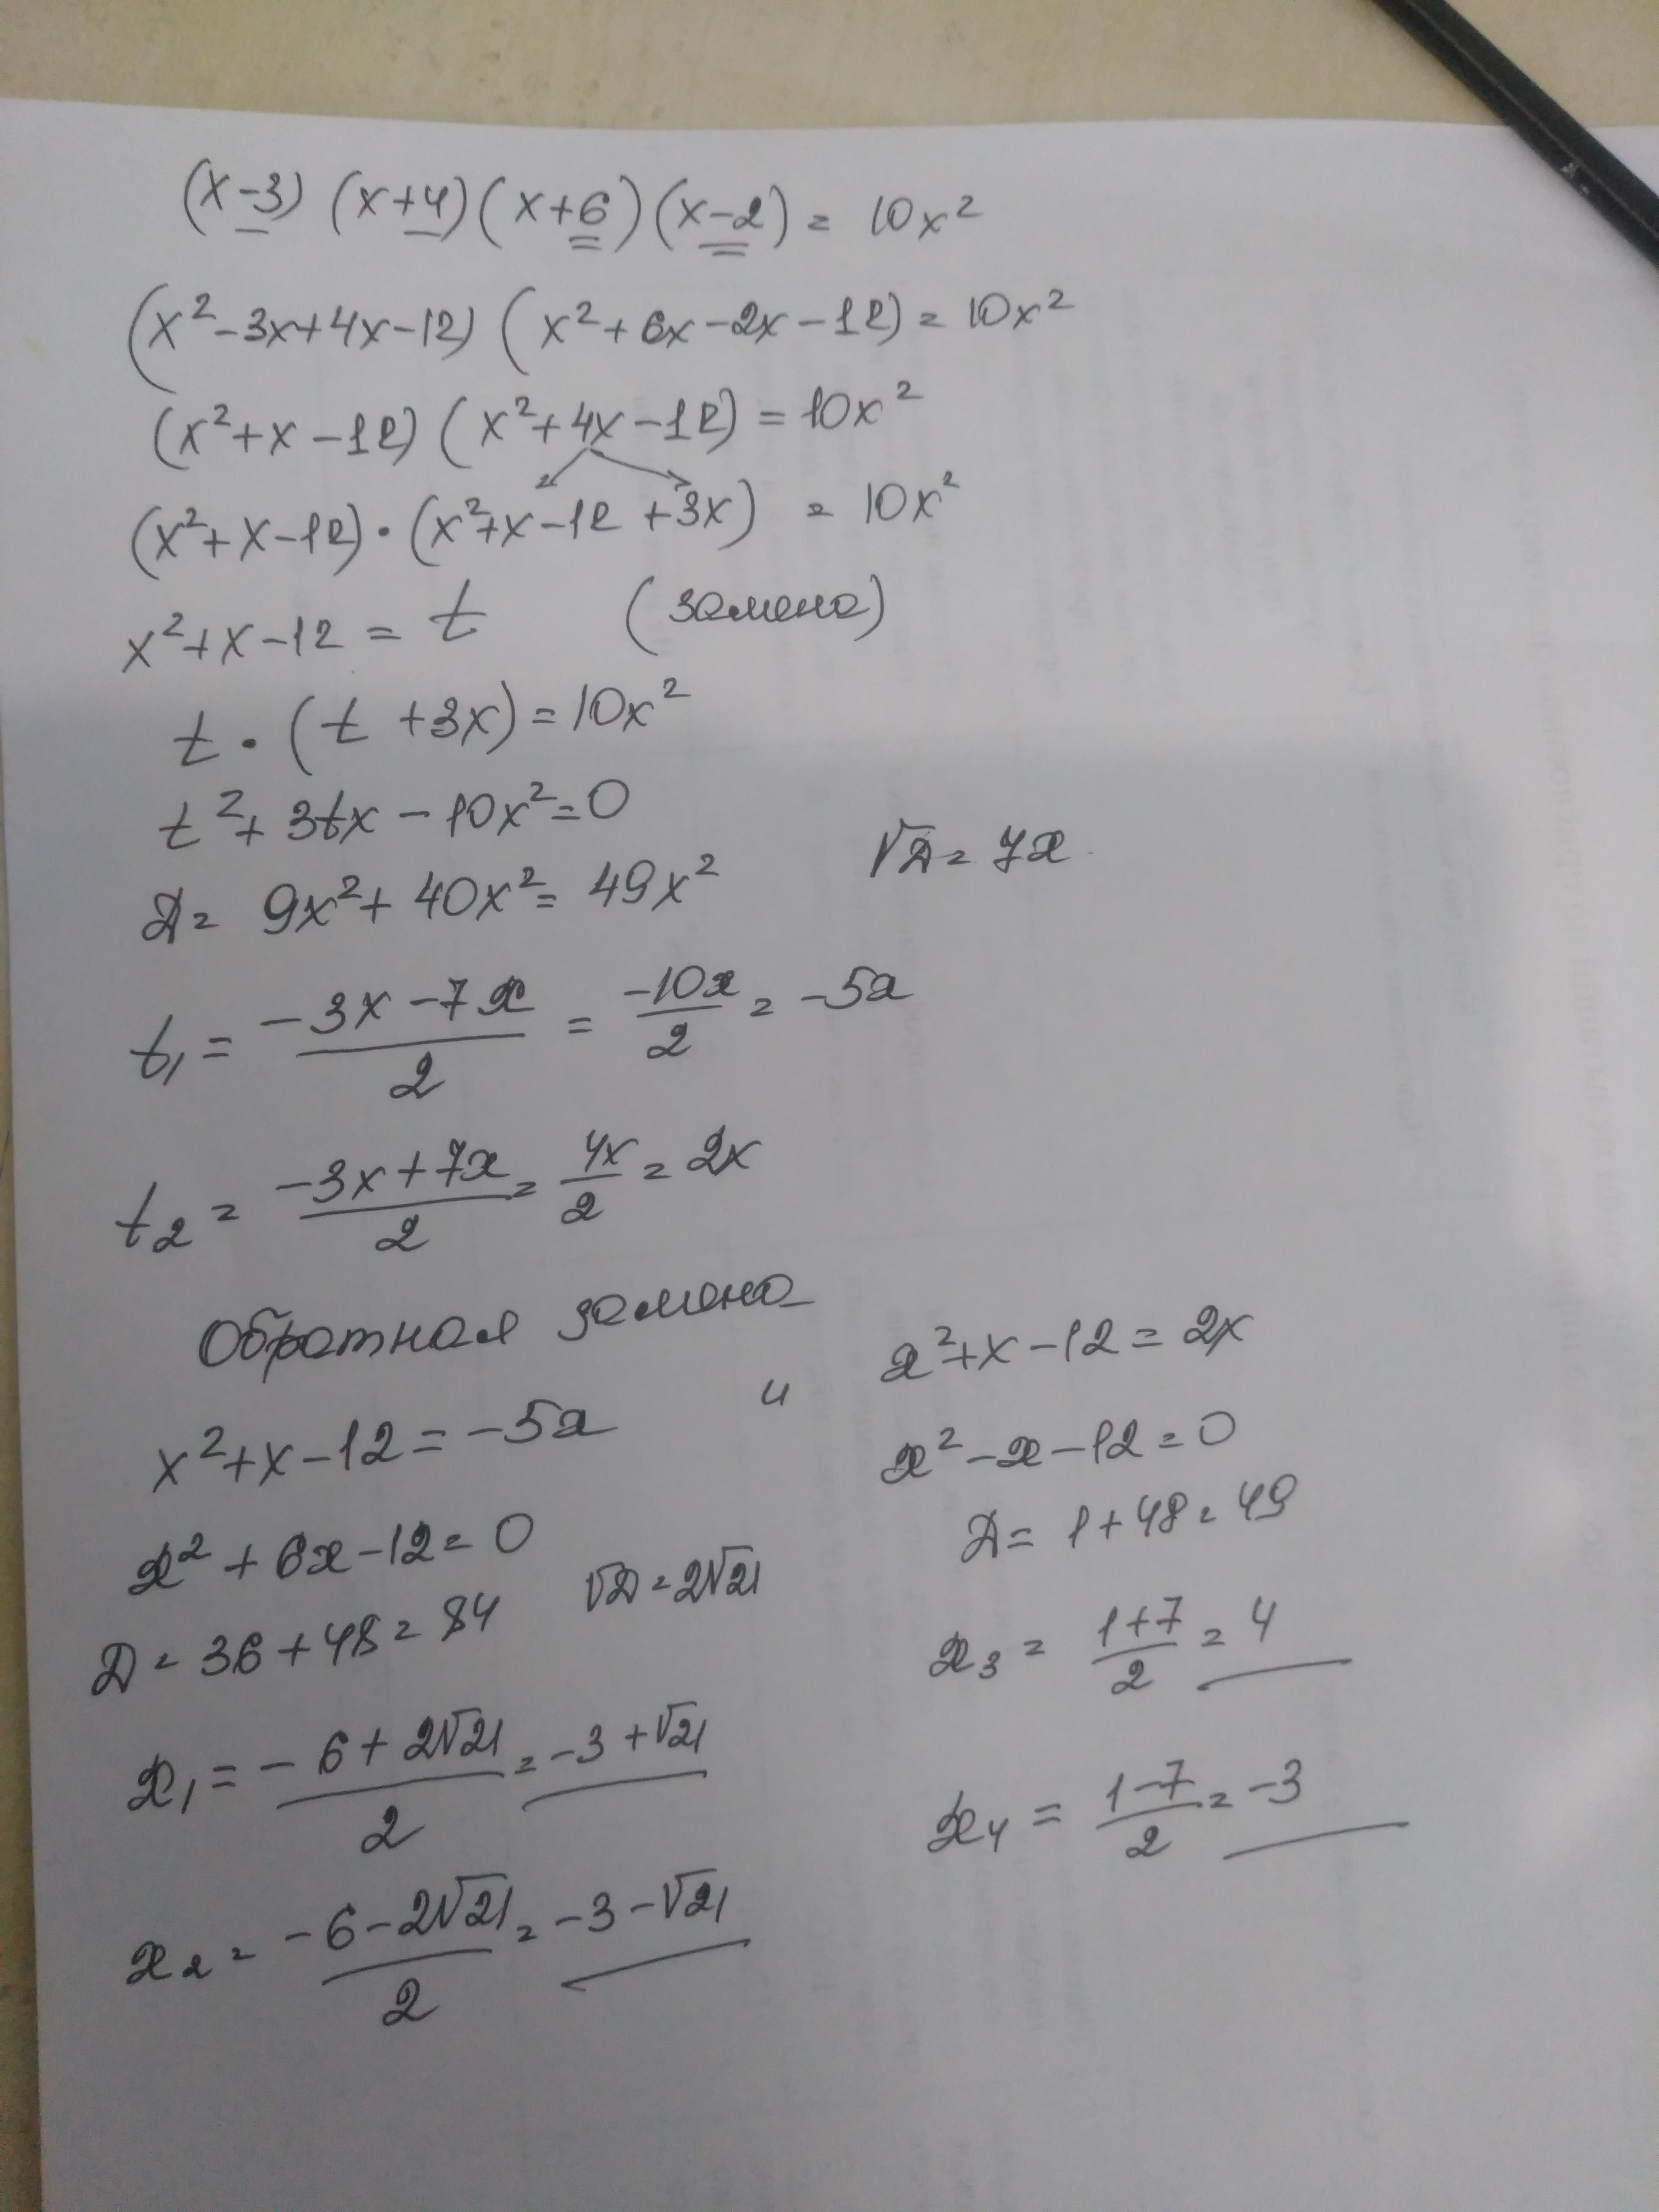 (x-3) (x+4) (x+6) (x-2) = 10x²
(x²-3x+4x-12) (x²+6x-2x-12) = 10x²
(x²+x-12) (x²+4x-12) = 10x²
(x²+x-12)·(x²+x-12 +3x) = 10x²
x²+x-12 = t (замена)
t·(t +3x) = 10x²
t²+3tx-10x²=0
D= 9x²+40x²= 49x² √D= 7x
t₁ = (-3x-7x)/2 = -10x/2 = -5x
t₂ = (-3x+7x)/2 = 4x/2 = 2x
Обратная замена
x²+x-12=-5x и x²+x-12=2x
x²+6x-12=0 x²-x-12=0
D=36+48=84 √D=2√21 D= 1+48=49
x₁= (-6+2√21)/2 = -3+√21 x₃= (1+7)/2 = 4
x₂= (-6-2√21)/2 = -3-√21 x₄= (1-7)/2 = -3